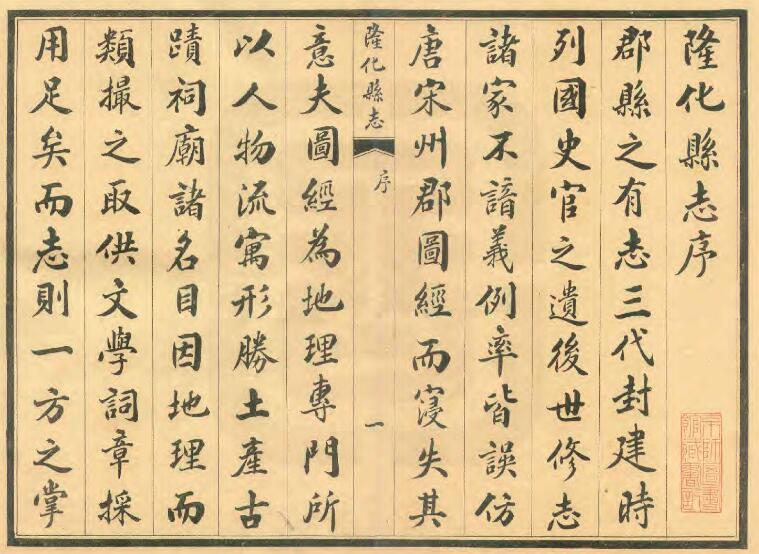 隆化縣志序
郡縣之有志三代封建時
列國史官之遺後世修志
諸家不諳義例率皆誤仿
唐宋州郡圖經而寖失其
隆化縣志
序
一
意夫圖經為地理專門所
以人物流寓形勝土產古
蹟祠廟諸名目因地理而
類撮之取供文學詞章採
用足矣而志則一方之掌